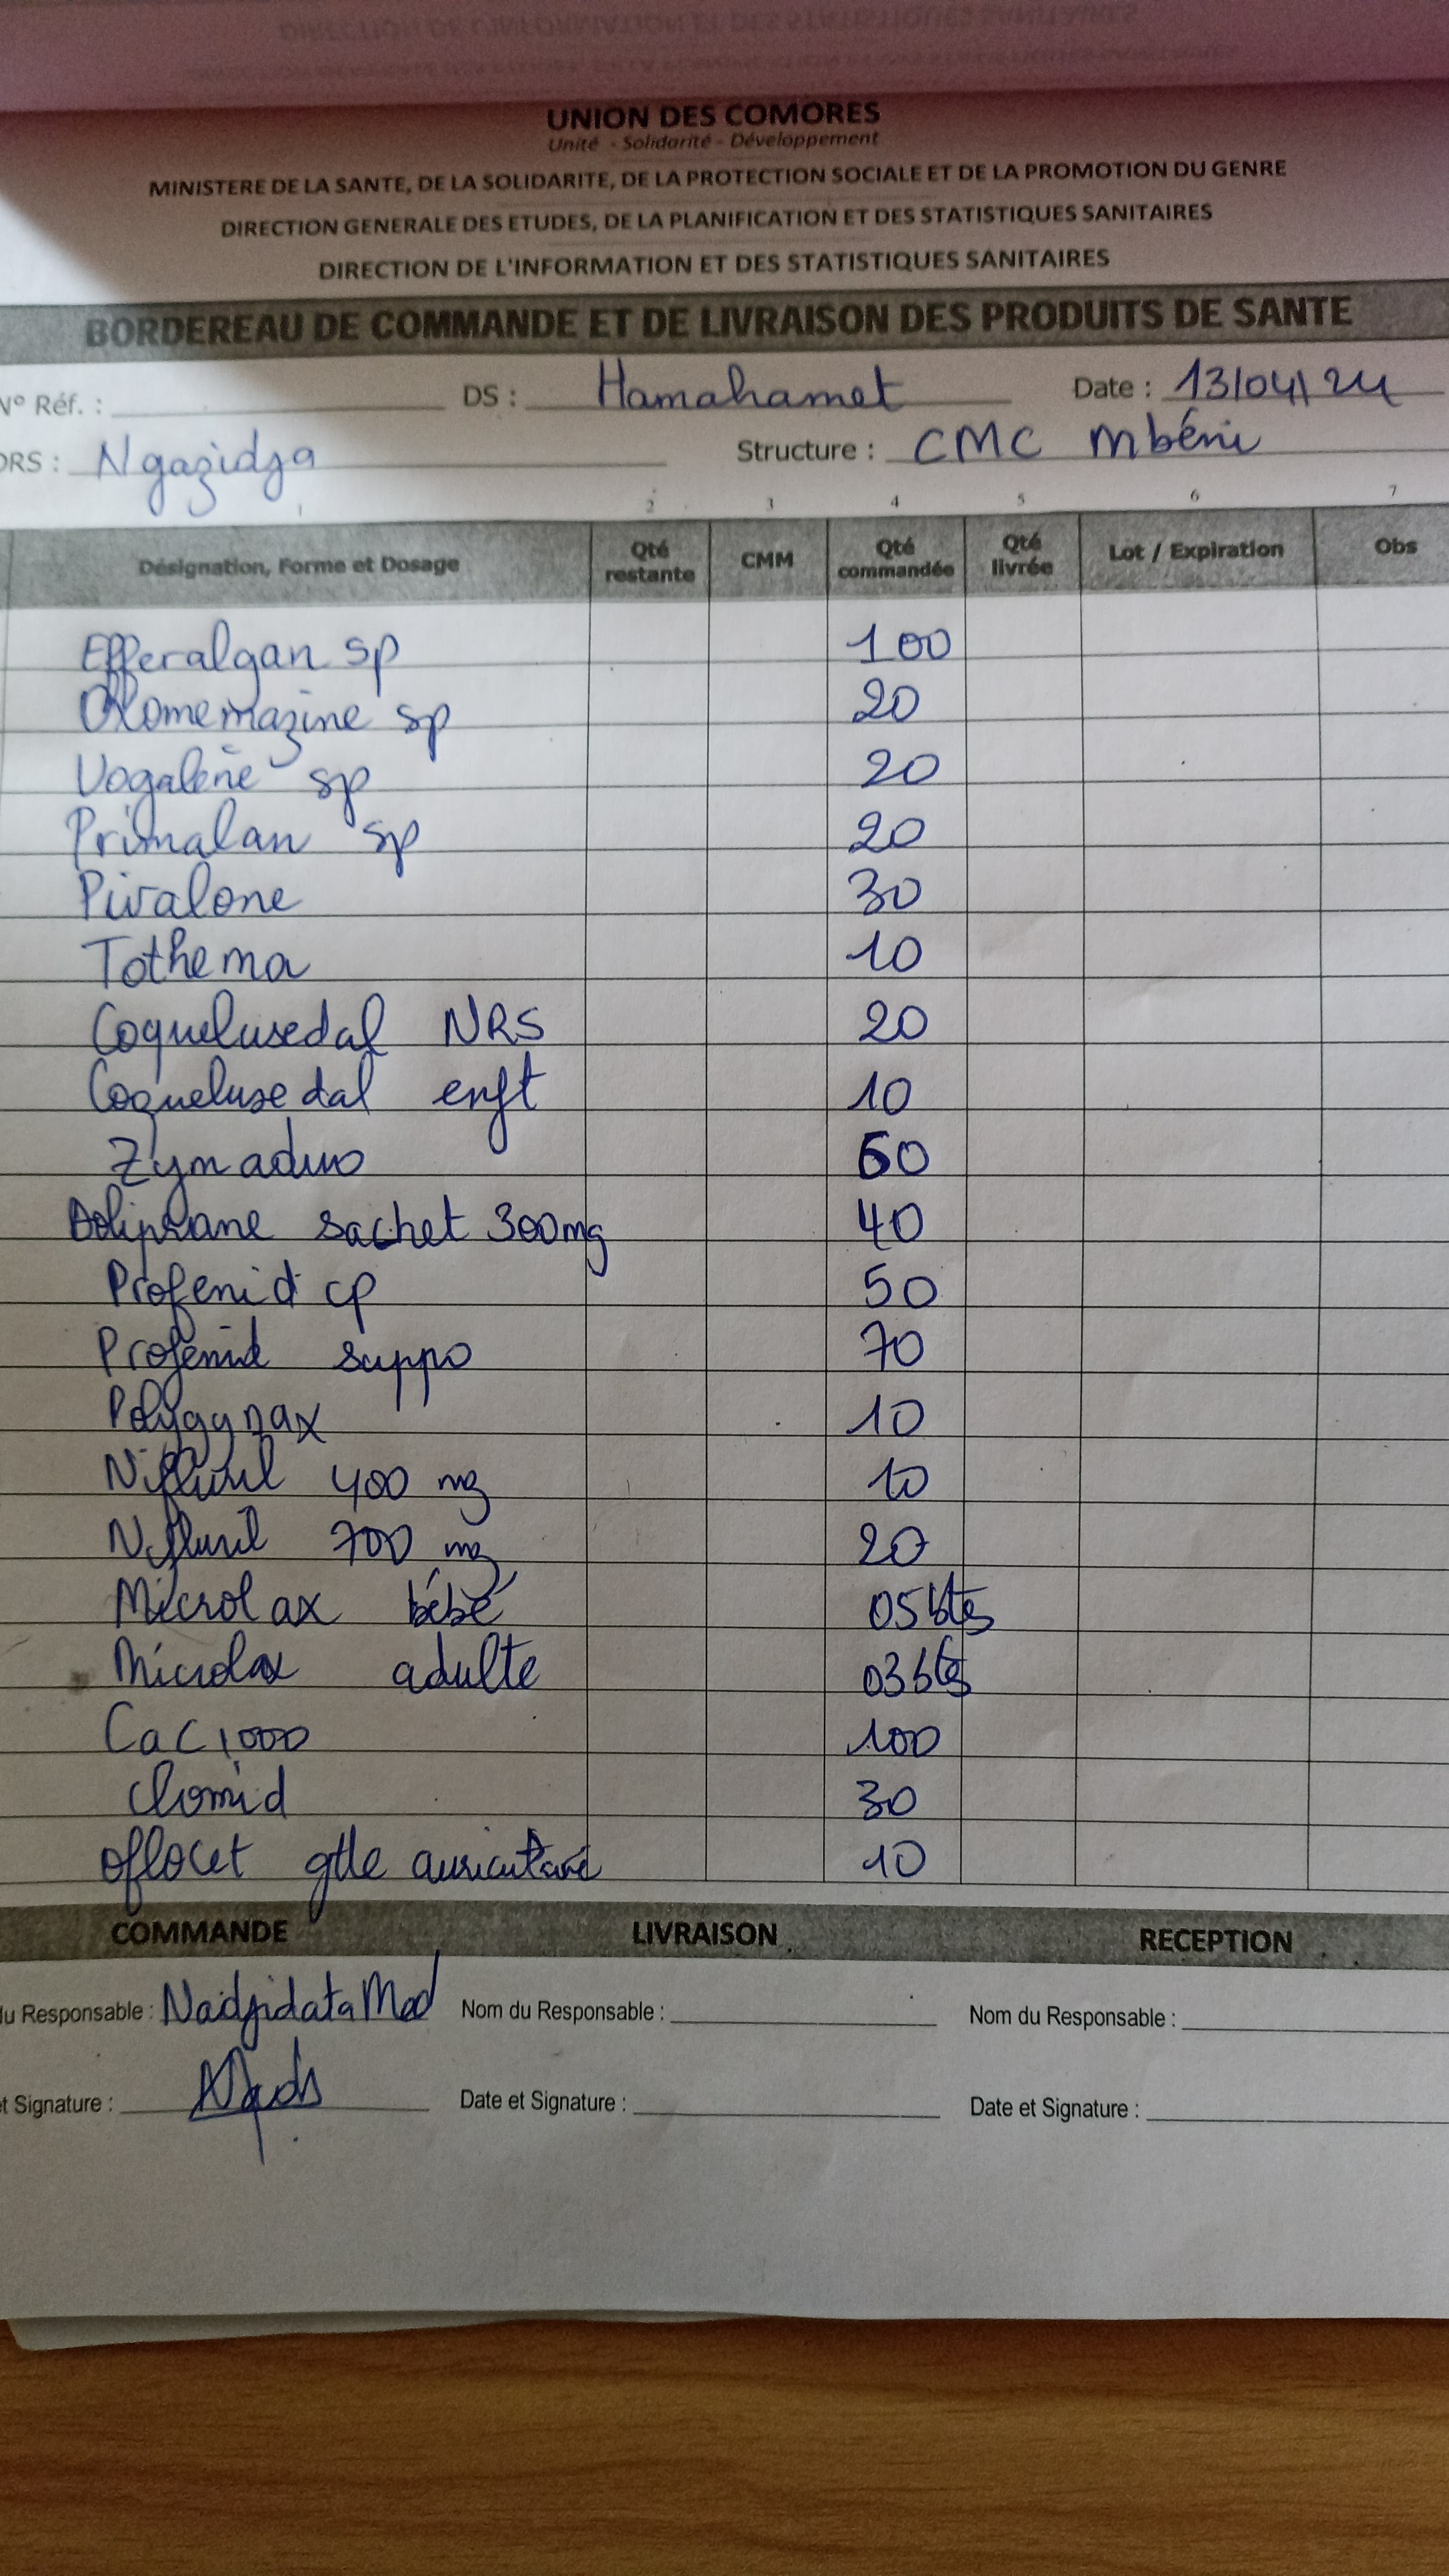 UNION DES COMORES
Unité - Solidarité - Développement
MINISTERE DE LA SANTE, DE LA SOLIDARITE, DE LA PROTECTION SOCIALE ET DE LA PROMOTION DU GENRE
DIRECTION GENERALE DES ETUDES, DE LA PLANIFICATION ET DES STATISTIQUES SANITAIRES
DIRECTION DE L'INFORMATION ET DES STATISTIQUES SANITAIRES
BORDEREAU DE COMMANDE ET DE LIVRAISON DES PRODUITS DE SANTE
N° Réf. : DS : Hamahamet Date : 13/04/24
DRS : Ngazidja Structure : CMC Mbéni
1 2 3 4 5 6 7
Désignation, Forme et Dosage Qté restante CMM Qté commandée Qté livrée Lot / Expiration Obs
Efferalgan sp 100
Oxomemazine sp 20
Vogalène sp 20
Primalan sp 20
Pivalone 30
Tothema 10
Coquelusedal NRS 20
Coquelusedal enft 10
Zymaduo 60
Doliprane sachet 300mg 40
Profenid cp 50
Profenid suppo 70
Polygynax 10
Nifluril 400 mg 10
Nifluril 700 mg 20
Microlax bébé 05 btes
Microlax adulte 03 btes
CaC1000 100
Clomid 30
oflocet gtte auriculaire 10
COMMANDE LIVRAISON RECEPTION
du Responsable : Nadjidata Med Nom du Responsable : Nom du Responsable :
et Signature : Date et Signature : Date et Signature :